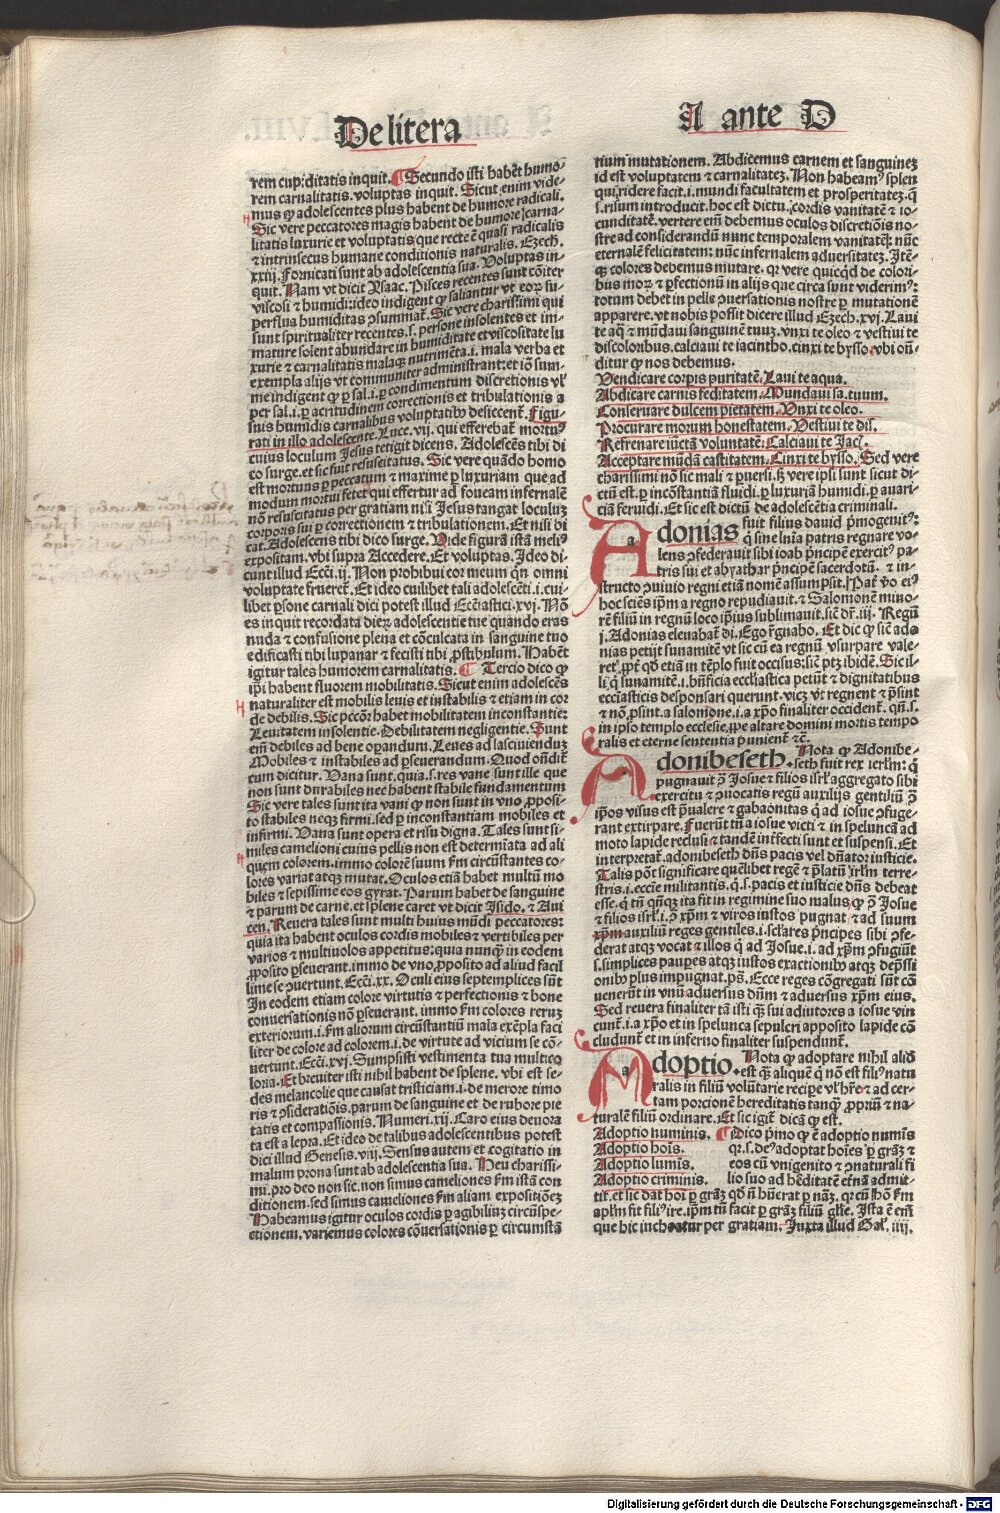 De litera
A ante D
rem cupiditatis inquit. Secundo isti habẽt humo
rem carnalitatis. voluptas inquit. Sicut enim vide-
mus ꝙ adolescentes plus habent de humore radicali.
Sic vere peccatores magis habent de humore carna-
litatis luxurie et voluptatis que recte ẽ quasi radicalis
⁊ intrinsecus humane conditionis naturalis. Ezech.
xxiij. Fornicati sunt ab adolescentia sua. Voluptas in-
quit. Nam vt dicit Ysaac. Pisces recentes sunt cõiter
viscosi ⁊ humidi: ideo indigent ꝙ saliantur vt eorum su-
perflua humiditas ɔsummat͛. Sic vere charissimi qui
sunt spiritualiter recentes .s. persone insolentes et im-
mature solent abundare in humiditate et viscositate lu
xurie ⁊ carnalitatis malaꝗ nutrimẽta .i. mala verba et
exempla alijs vt communiter administrant: et iõ sum-
me indigent ꝙ ꝑ sal .i. ꝑ condimentum discretionis vl̛
per sal .i. ꝑ acritudinem correctionis et tribulationis a
suis humidis carnalibus voluptatibꝰ desiccent͛. Figu-
rati in illo adolescente. Luce. vij. qui efferebat͛ mortuꝰ
cuius loculum Jesus tetigit dicens. Adolescẽs tibi di
co surge. et sic fuit resuscitatus. Sic vere quãdo homo
est mortuus ꝑ peccatum ⁊ maxime ꝑ luxuriam que ad
modum mortui fetet qui effertur ad foueam infernalẽ
nõ resuscitatus per gratiam nisi Jesus tangat loculuꝫ
corporis sui ꝑ correctionem ⁊ tribulationem. Et nisi di
cat. Adolescens tibi dico surge. Vide figurã istã meliꝰ
expositam. vbi supra Accedere. Et voluptas. Ideo di-
cunt illud Ecci. ij. Non prohibui cor meum qn̄ omni
voluptate frueret͛. Et ideo cuilibet tali adolescẽti .i. cui-
libet ꝑsone carnali dici potest illud Ecciastici. xvj. Nõ
es inquit recordata dierꝝ adolescentie tue quando eras
nuda ⁊ confusione plena et cõculcata in sanguine tuo
edificasti tibi lupanar ⁊ fecisti tibi ꝓstibulum. Habẽt
igitur tales humorem carnalitatis. Tercio dico ꝙ
ip̄i habent fluorem mobilitatis. Sicut enim adolescẽs
naturaliter est mobilis leuis et instabilis ⁊ etiam in cor
de debilis. Sic peccõr habet mobilitatem inconstantie:
Leuitatem insolentie. Debilitatem negligentie. Sunt
em̄ debiles ad bene oꝑandum. Leues ad lasciuienduꝫ
Mobiles ⁊ instabiles ad ꝑseuerandum. Quod oñdit͛
cum dicitur. Vana sunt. quia .s. res vane sunt ille que
non sunt durabiles nec habent stabile fundamentum
Sic vere tales sunt ita vani ꝙ non sunt in vno ꝓposi-
to stabiles neqꝫ firmi. sed ꝑ inconstantiam mobiles et
infirmi. Vana sunt opera et risu digna. Tales sunt si-
miles camelioni cuius pellis non est determĩata ad ali
quem colorem. immo colorẽ suum ẜm circũstantes co-
lores variat atqꝫ mutat. Oculos etiã habet multũ mo
biles ⁊ sepissime eos gyrat. Parum habet de sanguine
⁊ parum de carne. et splene caret vt dicit Isido. ⁊ Aui
cen. Reuera tales sunt multi huius mũdi peccatores:
quia ita habent oculos cordis mobiles ⁊ vertibiles per
varios ⁊ multiuolos appetitus: quia nunqᷓ in eodem
ꝓposito ꝑseuerant. immo de vno ꝓposito ad aliud facil
lime se ɔuertunt. Ecci. xx. Oculi eius septemplices sũt
In eodem etiam colore virtutis ⁊ perfectionis ⁊ bone
conuersationis nõ ꝑseuerant. immo ẜm colores reruꝫ
exteriorum .i. ẜm aliorum circũstantiũ mala exẽpla faci
liter de colore ad colorem .i. de virtute ad vicium se cõ-
uertunt. Ecci. xvj. Sumpsisti vestimenta tua multico
loria. Et breuiter isti nihil habent de splene. vbi est se-
des melancolie que causat tristiciam .i. de merore timo
ris ⁊ ɔsiderationis. parum de sanguine et de rubore pie
tatis et compassionis. Numeri. xij. Caro eius deuora
ta est a lepra. Et ideo de talibus adolescentibus potest
dici illud Genesis. viij. Sensus autem et cogitatio in
malum prona sunt ab adolescentia sua. Heu charissi-
mi. pro deo non sic. non simus cameliones ẜm istã con
ditionem. sed simus cameliones ẜm aliam expositiõeꝫ
Habeamus igitur oculos cordis ꝑ agibiliuꝫ circũspe-
ctionem. variemus colores cõuersationis ꝑ circumstã
tium mutationem. Abdicemus carnem et sanguineꝫ
id est voluptatem ⁊ carnalitateꝫ. Non habeamꝰ splen
qui ridere facit .i. mundi facultatem et prosperitateꝫ. q̄
.s. risum introducit. hoc est dictu. cordis vanitatẽ ⁊ io-
cunditatẽ. vertere em̄ debemus oculos discretiõis no-
stre ad considerandũ nunc temporalem vanitatẽ: nũc
eternalẽ felicitatem: nũc infernalem aduersitateꝫ. Itẽ
ꝙ colores debemus mutare. qr̄ vere quicqͥd de colori-
bus morꝝ ⁊ ꝑfectionũ in alijs que circa sunt viderimꝰ:
totum debet in pelle ɔuersationis nostre ꝑ mutationẽ
apparere. vt nobis possit dicere illud Ezech. xvj. Laui
te aqᷓ ⁊ mũdaui sanguinẽ tuuꝫ. vnxi te oleo ⁊ vestiui te
discoloribus. calciaui te iacintho. cinxi te bysso. vbi oñ-
ditur ꝙ nos debemus.
Vendicare corꝑis puritatẽ. Laui te aqua.
Abdicare carnis feditatem. Mundaui sã. tuum.
Conseruare dulcem pietatem. Vnxi te oleo.
Procurare morum honestatem. Vestiui te dis.
Refrenare iũctã voluntatẽ. Calciaui te Jac̄.
Acceptare mũdã castitatem. Cinxi te bysso. Sed vere
charissimi nõ sic mali ⁊ ꝑuersi. qꝫ vere ipsi sunt sicut di-
ctũ est. ꝑ incõstantiã fluidi. ꝑ luxuriã humidi. ꝑ auari-
ciã feruidi. Et sic est dictũ de adolescẽtia criminali.
Adonias fuit filius dauid pͥmogenitꝰ:
q̄ sine lnĩa patris regnare vo-
lens ɔfederauit sibi ioab pͥncipẽ exercitꝰ pa-
tris sui et abyathar pͥncipẽ sacerdotũ. ⁊ in-
structo ɔuiuio regni etiã nomẽ assumpsit. Pat͛ vo eiꝰ
hoc sciẽs ip̄m a regno repudiauit. ⁊ Salomonẽ mino-
rẽ filiũ in regnũ loco ip̄ius sublimauit. sic dr̄. iij. Regũ
j. Adonias eleuabat͛ dĩ. Ego r̄gnabo. Et dic ꝙ sic̄ ado
nias petijt sunamitẽ vt sic cũ ea regnũ vsurpare vale-
ret. ꝓpt̄ qd̄ etiã in tẽplo fuit occisus: sic̄ ptꝫ ibidẽ. Sic il-
li q̄ lunamitẽ .i. bñficia ecclesiastica petũt ⁊ dignitatibus
ecciasticis desponsari querunt. vicꝫ vt regnent ⁊ ꝓsint
⁊ nõ ꝓsint. a salomone .i. a xp̄o finaliter occident͛. qñ .s.
in ipso templo ecclesie. ꝓpe altare domini mortis tempo
ralis et eterne sententia punient͛ ⁊c̄.
Adonibeseth. Nota ꝙ Adonibe-
seth fuit rex ierlm̄: q̄
pugnauit ɔ̄ Josue ⁊ filios isrl̄ aggregato sibi
exercitu ⁊ ɔuocatis regũ auxilijs gentiliũ ɔ̄
ip̄os visus est p̄ualere ⁊ gabaonitas q̄ ad iosue ɔfuge-
rant extirpare. Fuerũt tñ a iosue victi ⁊ in speluncã ad
moto lapide reclusi ⁊ tandẽ int̄fecti sunt et suspensi. Et
in terpretat͛. adonibeseth dñs pacis vel dñator iusticie.
Talis põt significare quẽlibet regẽ ⁊ p̄latũ ierl̄m terre-
stris .i. eccie militantis. q̄ .s. pacis et iusticie dñs debeat
esse. q̄ tñ qñqꝫ ita fit in regimine suo malus ꝙ ɔ̄ Josue
⁊ filios isrl̄ .i. ɔ̄ xp̄m ⁊ viros iustos pugnat ⁊ ad suum
xp̄m auxiliũ reges gentiles .i. sclares pͥncipes sibi ɔfe-
derat atqꝫ vocat ⁊ illos q̄ ad Josue .i. ad xp̄m ɔfugiũt
.s. simplices paupes atqꝫ iustos exactionibꝰ atqꝫ dep̄ssi
onibꝰ ꝑlus impugnat. ps̄. Ecce reges cõgregati sũt cõ
uenerũt in vnũ aduersus dñm ⁊ aduersus xp̄m eius.
Sed reuera finaliter tã isti qᷓ sui adiutores a iosue vin
cunt͛ .i. a xp̄o et in spelunca sepulcri apposito lapide cõ
cludunt͛ et in inferno finaliter suspendunt͛.
Adoptio. Nota ꝙ adoptare nihil aliđ
est qᷓ aliquẽ q̄ nõ est filiꝰ natu
ralis in filiũ volũtarie recipe vl̛ hr̄e ⁊ ad cer-
tam porcionẽ hereditatis tanqᷓ ꝓpriũ ⁊ na-
turalẽ filiũ ordinare. Et sic igit̄ dicã ꝙ est.
Adoptio numinis. Dico pͥmo ꝙ ẽ adoptio numĩs
Adoptio hoĩs. qr̄ .s. deꝰ adoptat hoĩes ꝑ grãꝫ ⁊
Adoptio lumĩs. eos cũ vnigenito ⁊ ɔnaturali fi
Adoptio criminis. lio suo ad hẽditatẽ et̄nã admit-
tit. et sic dat hoĩ ꝑ grãꝫ qd̄ nõ hũerat ꝑ nãꝫ. qr̄ cũ hõ ẜm
apl̄m fit filiꝰ ire. ip̄m tñ facit ꝑ grãꝫ filiũ gl̄ie. Ista ẽ em̄
que hic inchoatur per gratiam. Juxta illud Gal̄. iiij.
Digitalisierung gefördert durch die Deutsche Forschungsgemeinschaft - DFG